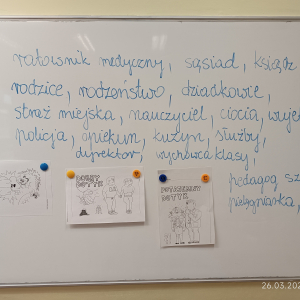 ratownik medyczny, sąsiad, ksiądz
rodzice, rodzeństwo, dziadkowie,
straż miejska, nauczyciel, ciocia, wujek
policja, opiekun, kuzyn, służby,
dyrektor, wychowca klasy,
pedagog sz
pielęgniarka,
DOBRY
DOTYK
POTAJEMNY
DOTYK
26.03.202